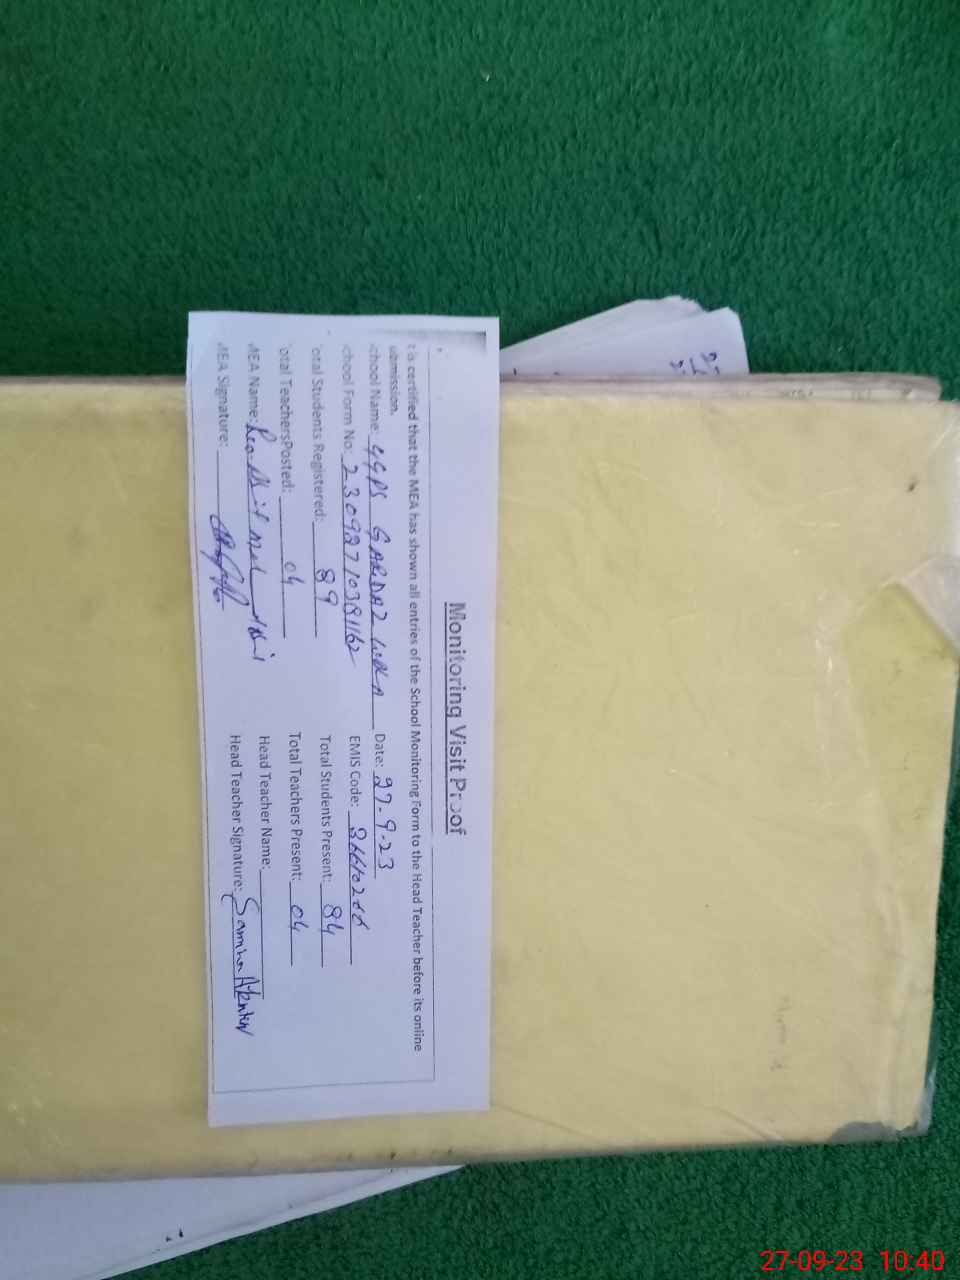 Monitoring Visit Proof
t is certified that the MEA has shown all entries of the School Monitoring Form to the Head Teacher before its online
ubmission.
chool Name: GGPS GARDAZ Date: 27-9-23
chool Form No: EMIS Code:
otal Students Registered: 89 Total Students Present: 84
otal TeachersPosted: 04 Total Teachers Present: 04
MEA Name: Head Teacher Name:
MEA Signature: Head Teacher Signature:
27-09-23 10:40